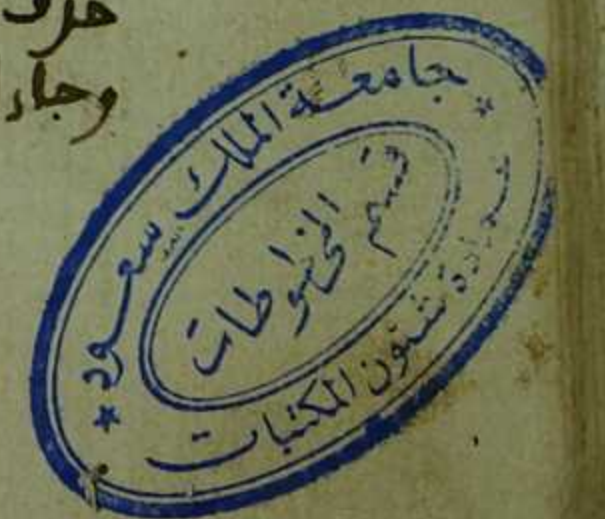 وجاد
جامعة الملك سعود
قسم المخطوطات
عمادة شئون المكتبات